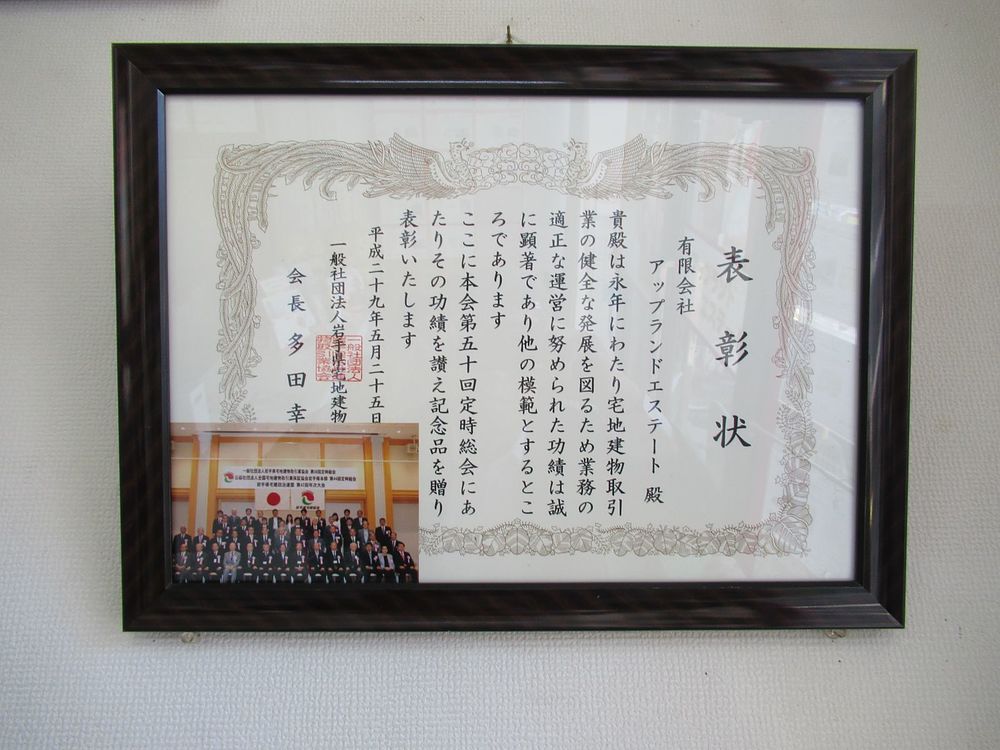 表彰状
有限会社
アップランドエステート 殿
貴殿は永年にわたり宅地建物取引
業の健全な発展を図るため業務の
適正な運営に努められた功績は誠
に顕著であり他の模範とするとこ
ろであります
ここに本会第五十回定時総会にあ
たりその功績を讃え記念品を贈り
表彰いたします
平成二十九年五月二十五日
一般社団法人岩手県宅地建物
会長 多田幸
一般社団法人岩手県宅地建物取引業協会 第50回定時総会